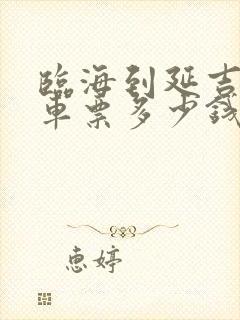 臨海到延吉
車票多少錢
惠婷